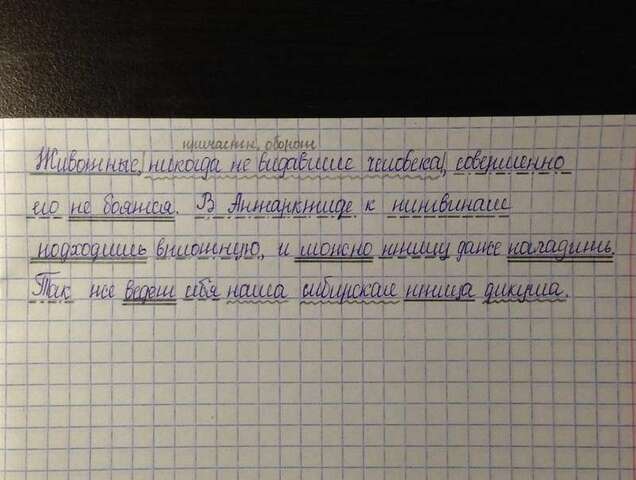 причастн. оборот
Животные, никогда не видавшие человека, совершенно
его не боятся. В Антарктиде к пингвинам
подходишь вплотную, и можно птицу даже погладить.
Так же ведет себя наша сибирская птица дикуша.